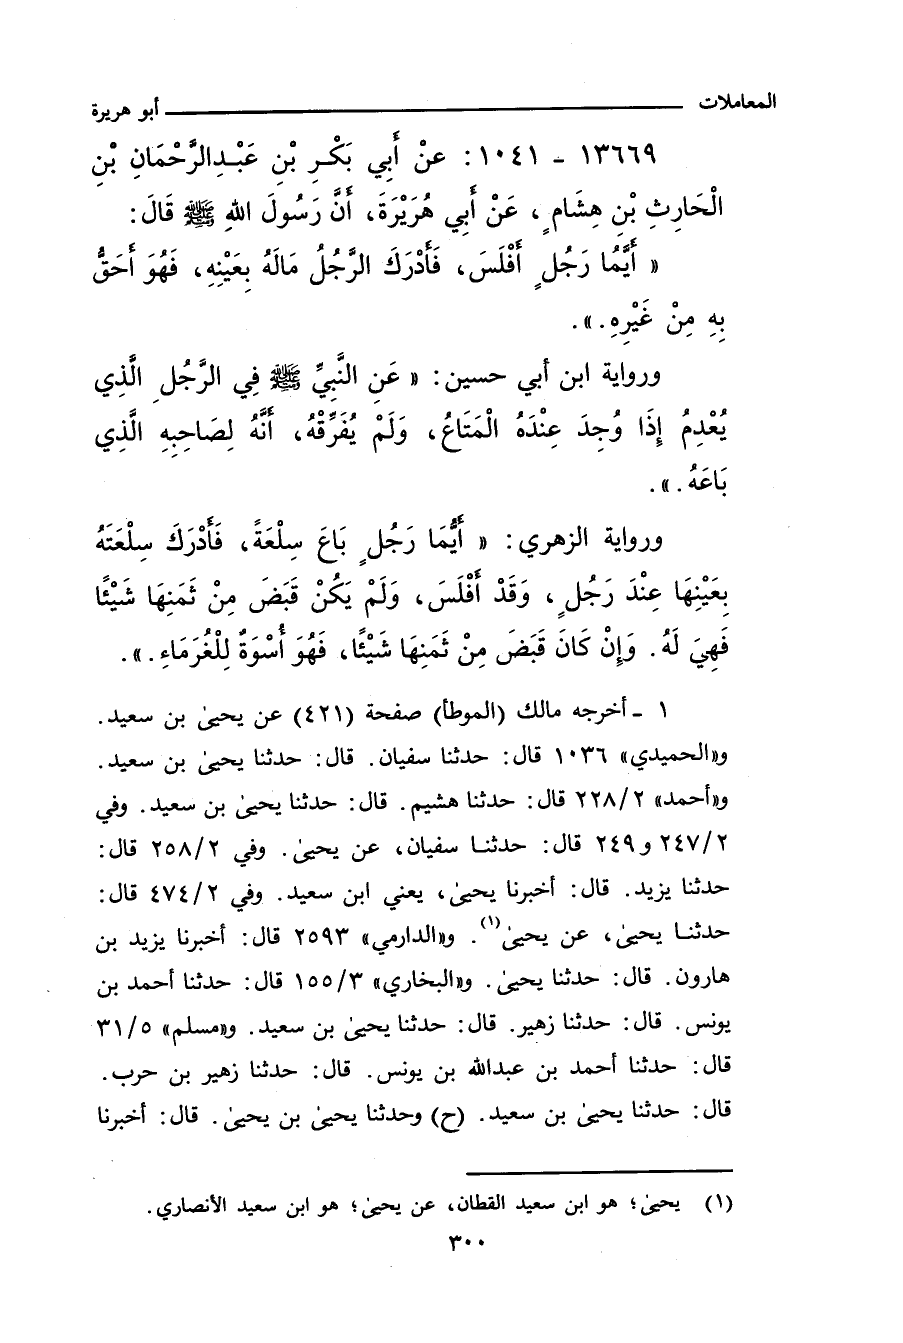 المعاملات ــــــــــ أبو هريرة
١٣٦٦٩ ـ ١٠٤١: عنْ أَبِي بَكْـرِ بْنِ عَبْـدِالرَّحْمَانِ بْنِ
الْحَارِثِ بْنِ هِشَامٍ ، عَنْ أَبِي هُرَيْرَةَ، أَنَّ رَسُولَ اللهِ ﷺ قَالَ:
« أَيُّمَا رَجُلٍ أَفْلَسَ، فَأَدْرَكَ الرَّجُلُ مَالَهُ بِعَيْنِهِ، فَهُوَ أَحَقُّ
بِهِ مِنْ غَيْرِهِ. ».
ورواية ابن أبي حسين: « عَنِ النَّبِيِّ ﷺ فِي الرَّجُلِ الَّذِي
يُعْدِمُ إِذَا وُجِدَ عِنْدَهُ الْمَتَاعُ، وَلَمْ يُفَرِّقْهُ، أَنَّهُ لِصَاحِبِهِ الَّذِي
بَاعَهُ. ».
ورواية الزهري: « أَيُّمَا رَجُلٍ بَاعَ سِلْعَةً، فَأَدْرَكَ سِلْعَتَهُ
بِعَيْنِهَا عِنْدَ رَجُلٍ ، وَقَدْ أَفْلَسَ، وَلَمْ يَكُنْ قَبَضَ مِنْ ثَمَنِهَا شَيْئًا
فَهِيَ لَهُ. وَإِنْ كَانَ قَبَضَ مِنْ ثَمَنِهَا شَيْئًا، فَهُوَ أُسْوَةٌ لِلْغُرَمَاءِ. ».
١ ـ أخرجه مالك (الموطأ) صفحة (٤٢١) عن يحيىٰ بن سعيد.
و«الحميدي» ١٠٣٦ قال: حدثنا سفيان. قال: حدثنا يحيىٰ بن سعيد.
و«أحمد» ٢٢٨/٢ قال: حدثنا هشيم. قال: حدثنا يحيىٰ بن سعيد. وفي
٢٤٧/٢ و ٢٤٩ قال: حدثنـا سفيان، عن يحيىٰ. وفي ٢٥٨/٢ قال:
حدثنا يزيد. قال: أخبرنا يحيىٰ، يعني ابن سعيد. وفي ٤٧٤/٢ قال:
حدثنـا يحيىٰ، عن يحيىٰ(١). و«الدارمي» ٢٥٩٣ قال: أخبرنا يزيد بن
هارون. قال: حدثنا يحيىٰ. و«البخاري» ١٥٥/٣ قال: حدثنا أحمد بن
يونس. قال: حدثنا زهير. قال: حدثنا يحيىٰ بن سعيد. و«مسلم» ٣١/٥
قال: حدثنا أحمد بن عبدالله بن يونس. قال: حدثنا زهير بن حرب.
قال: حدثنا يحيىٰ بن سعيد. (ح) وحدثنا يحيىٰ بن يحيىٰ. قال: أخبرنا
(١) يحيىٰ؛ هو ابن سعيد القطان، عن يحيىٰ؛ هو ابن سعيد الأنصاري.
٣٠٠